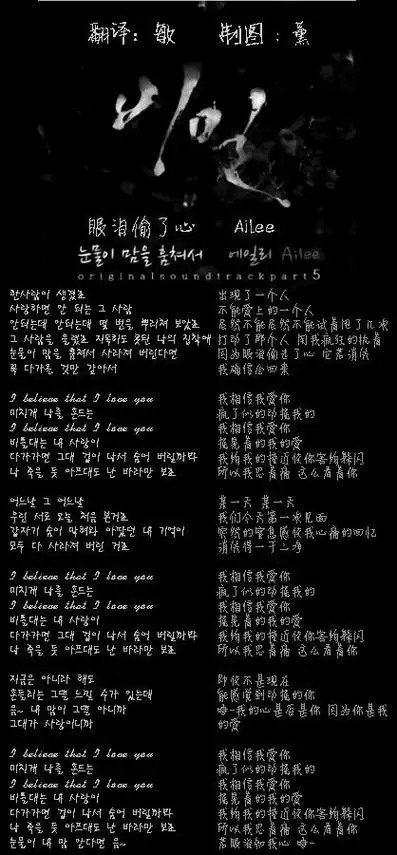 翻译：敏 制图：薰
비밀
眼泪偷了心 AiLee
눈물이 맘을 훔쳐서 에일리 Ailee
originalsoundtrackpart5
한사람이 생겼죠 出现了一个人
사랑하면 안 되는 그 사람 不能爱上的一个人
안되는데 안되는데 몇 번을 뿌리쳐 보았죠 居然不能居然不能试着甩了几次
그 사람을 울렸죠 지독히도 못된 나의 집착에 打动了那个人 因我疯狂的执着
눈물이 맘을 훔쳐서 사라져 버린다면 因为眼泪偷走了心 它若消失
꼭 다가올 것만 같아서 我确信会回来
I believe that I love you 我相信我爱你
미치게 나를 흔드는 疯了似的动摇我的
I believe that I love you 我相信我爱你
비틀대는 내 사랑이 摇晃着的我的爱
다가가면 그대 겁이 나서 숨어 버릴까봐 我怕我的接近候你害怕躲闪
나 죽을 듯 아프대도 난 바라만 보죠 所以我忍着痛 这么看着你
어느날 그 어느날 某一天 某一天
우린 서로 오늘 처음 본거죠 我们今天第一次见面
갑자기 숨이 막혀와 아팠던 내 기억이 突然的窒息感候我心痛的回忆
모두 다 사라져 버린 거죠 消失得一干二净
I believe that I love you 我相信我爱你
미치게 나를 흔드는 疯了似的动摇我的
I believe that I love you 我相信我爱你
비틀대는 내 사랑이 摇晃着的我的爱
다가가면 그대 겁이 나서 숨어 버릴까봐 我怕我的接近候你害怕躲闪
나 죽을 듯 아프대도 난 바라만 보죠 所以我忍着痛 这么看着你
지금은 아니라 해도 即使不是现在
흔들리는 그댈 느낄 수가 있는데 能感觉到动摇的你
음~ 내 맘이 그댈 아니까 嗯~我的心是否是你 因为你是我
그대가 사랑이니까 的爱
I believe that I love you 我相信我爱你
미치게 나를 흔드는 疯了似的动摇我的
I believe that I love you 我相信我爱你
비틀대는 내 사랑이 摇晃着的我的爱
다가가면 그대 겁이 나서 숨어 버릴까봐 我怕我的接近候你害怕躲闪
나 죽을 듯 아프대도 난 바라만 보죠 所以我忍着痛 这么看着你
눈물이 내 맘 안다면 음~ 若眼泪知我心 嗯~